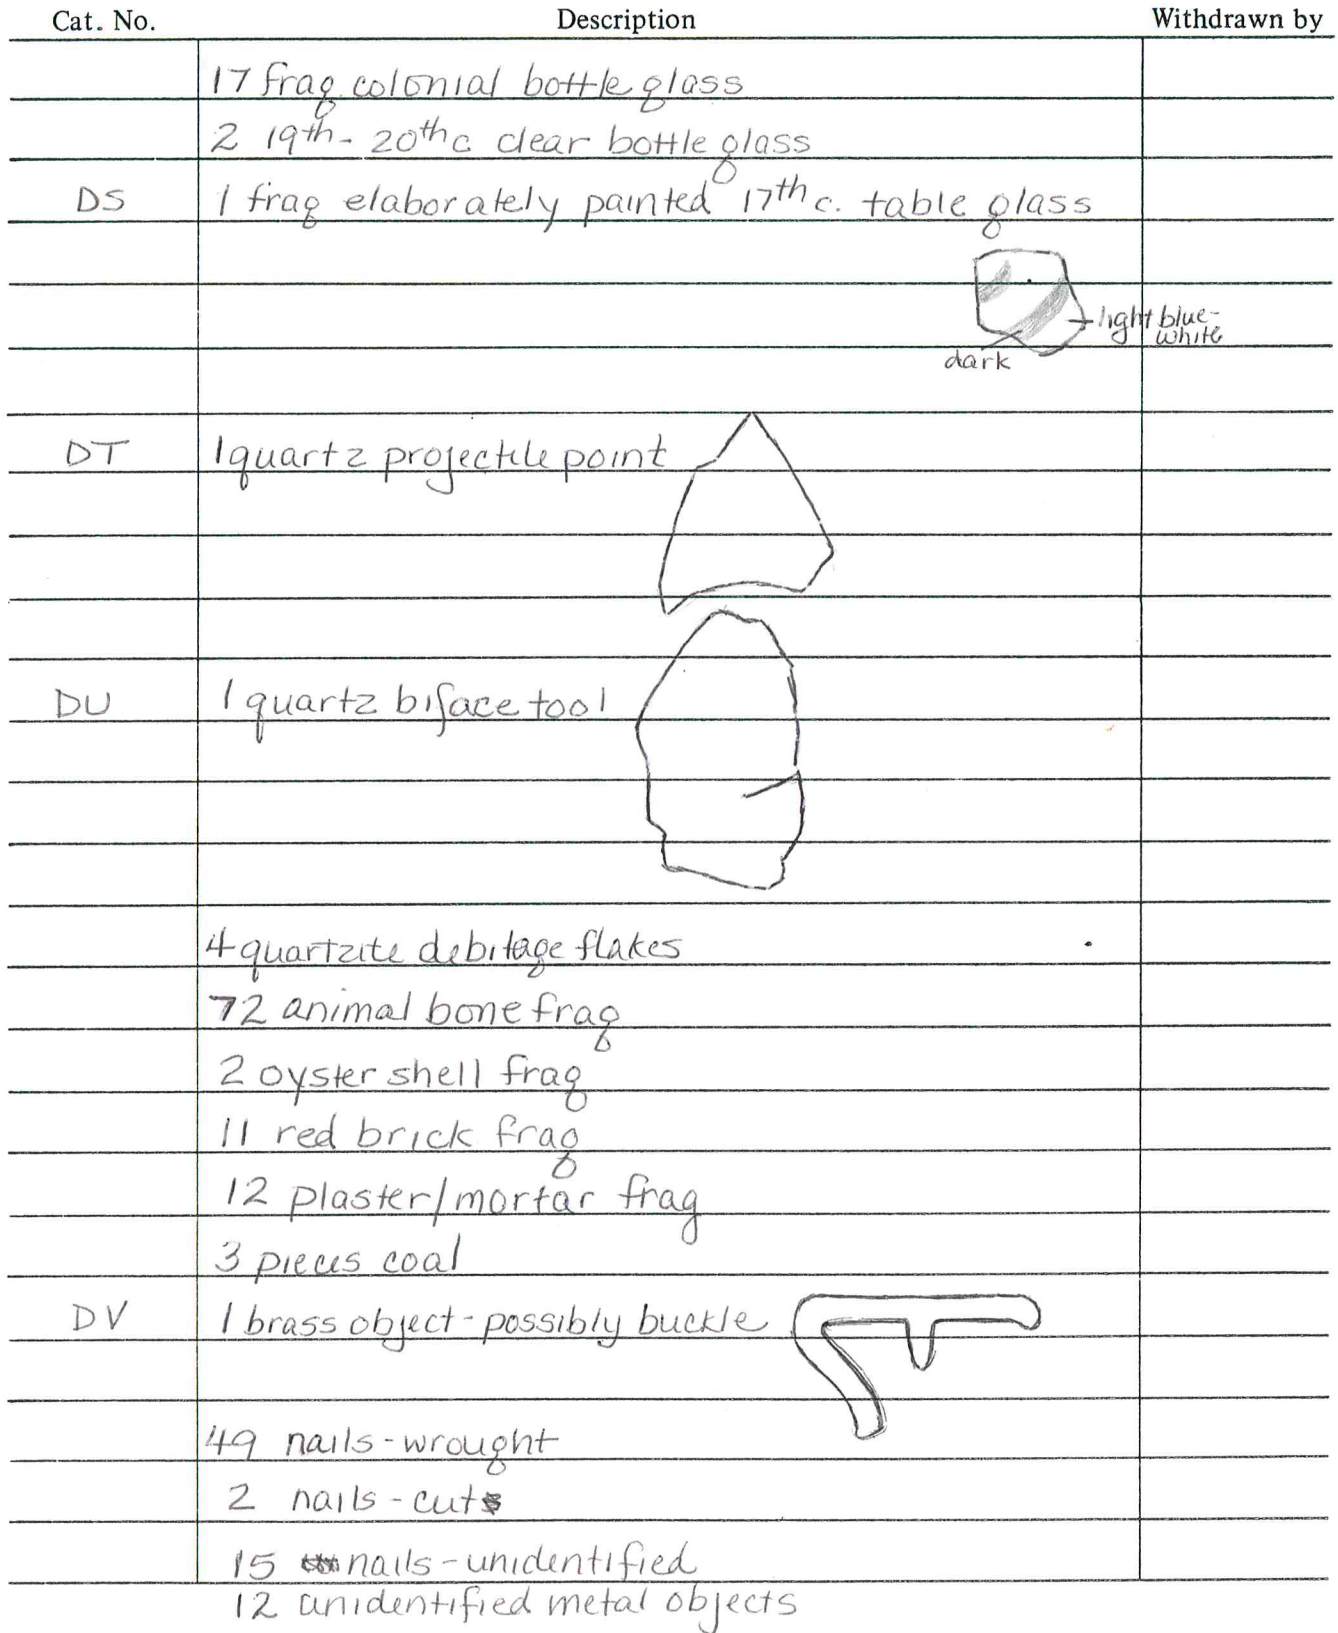 Cat. No. Description Withdrawn by
17 frag colonial bottle glass
2 19th - 20th c clear bottle glass
DS 1 frag elaborately painted 17th c. table glass
light blue-
white
dark
DT 1 quartz projectile point
DU 1 quartz biface tool
4 quartzite debitage flakes
72 animal bone frag
2 oyster shell frag
11 red brick frag
12 plaster/mortar frag
3 pieces coal
DV 1 brass object - possibly buckle
49 nails - wrought
2 nails - cut
15 nails - unidentified
12 unidentified metal objects